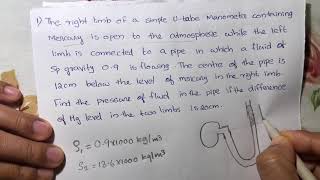 1) The right limb of a simple U-tube Manometer containing
Mercury is open to the atmosphere while the left
limb is connected to a pipe in which a fluid of
Sp gravity 0.9 is flowing. The centre of the pipe is
12cm below the level of mercury in the right limb.
Find the pressure of fluid in the pipe if the difference
of Hg level in the two limbs is 20cm.
S₁ = 0.9×1000 kg/m³
S₂ = 13.6×1000 kg/m³